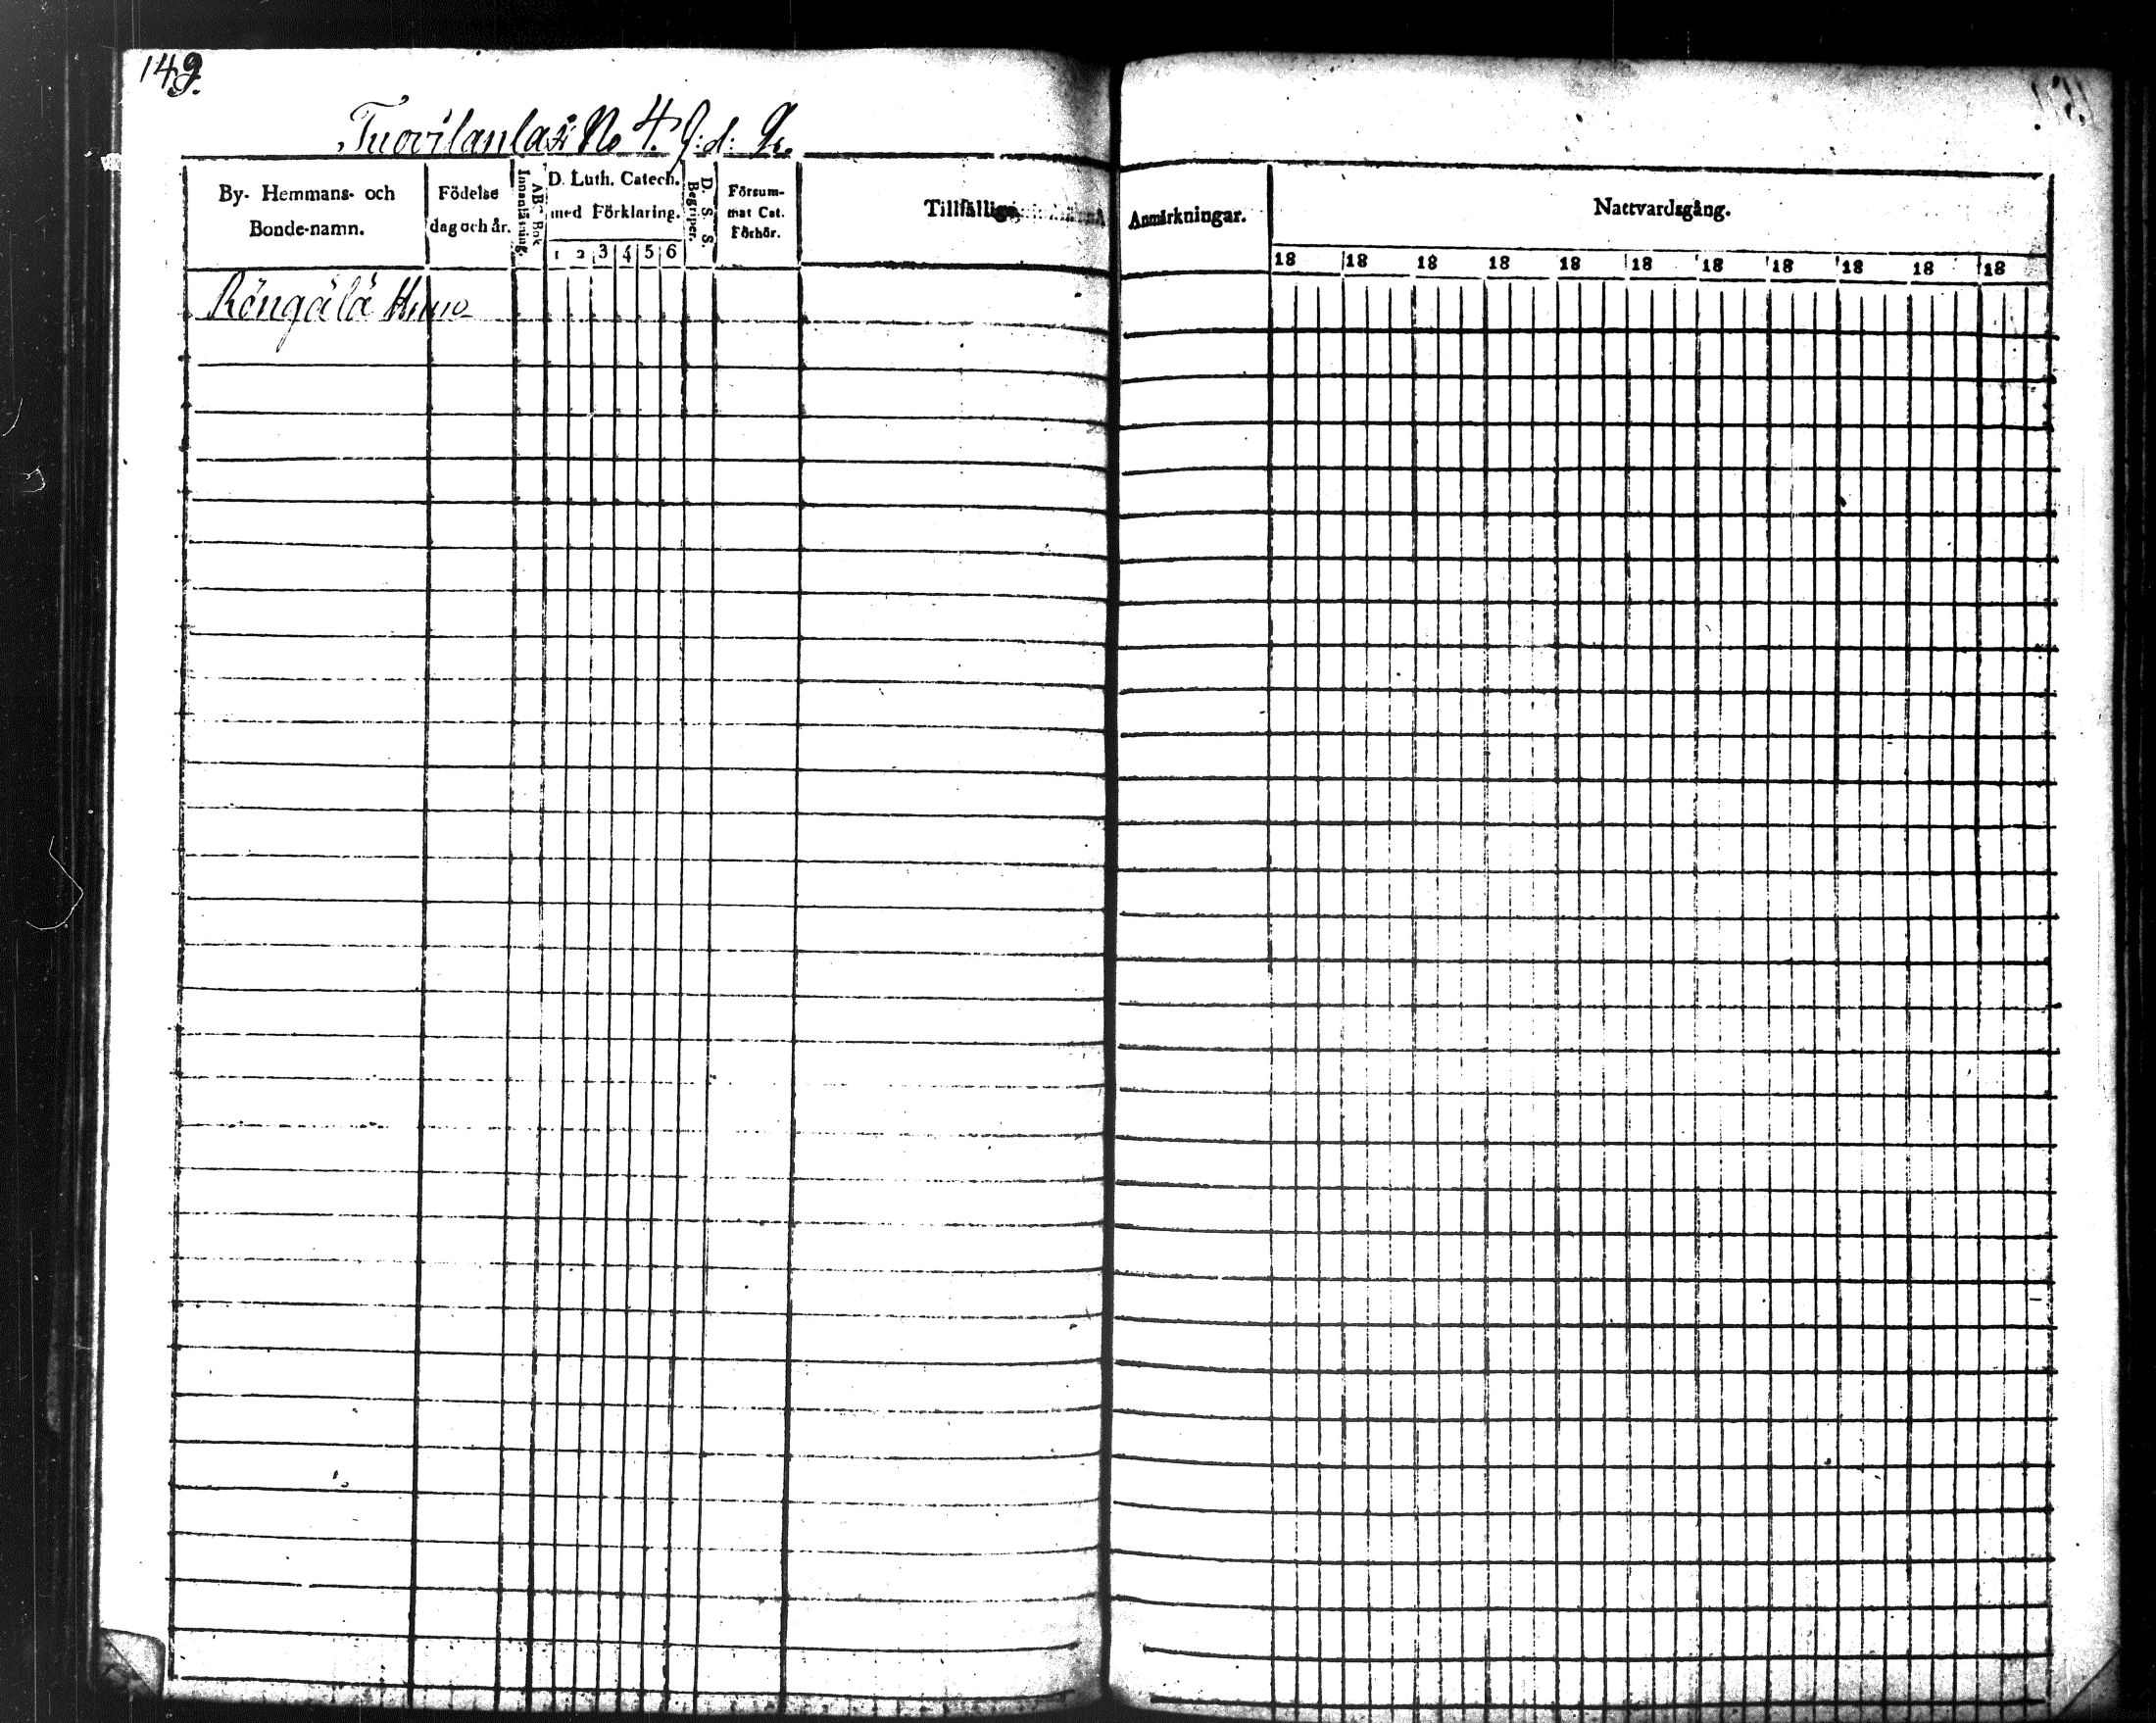 149.
Tuovilanlax No 4. J: d: Qv.
By- Hemmans- och Bonde-namn.
Födelse dag och år.
Innanläsning.
ABC Bok
D. Luth. Catech. med Förklaring.
1 2 3 4 5 6
D. S. S.
Begriper.
Försum-
mat Cat.
Förhör.
Tillfällige
Anmärkningar.
Nattvardsgång.
18 18 18 18 18 18 18 18 18 18 18
Röngälä